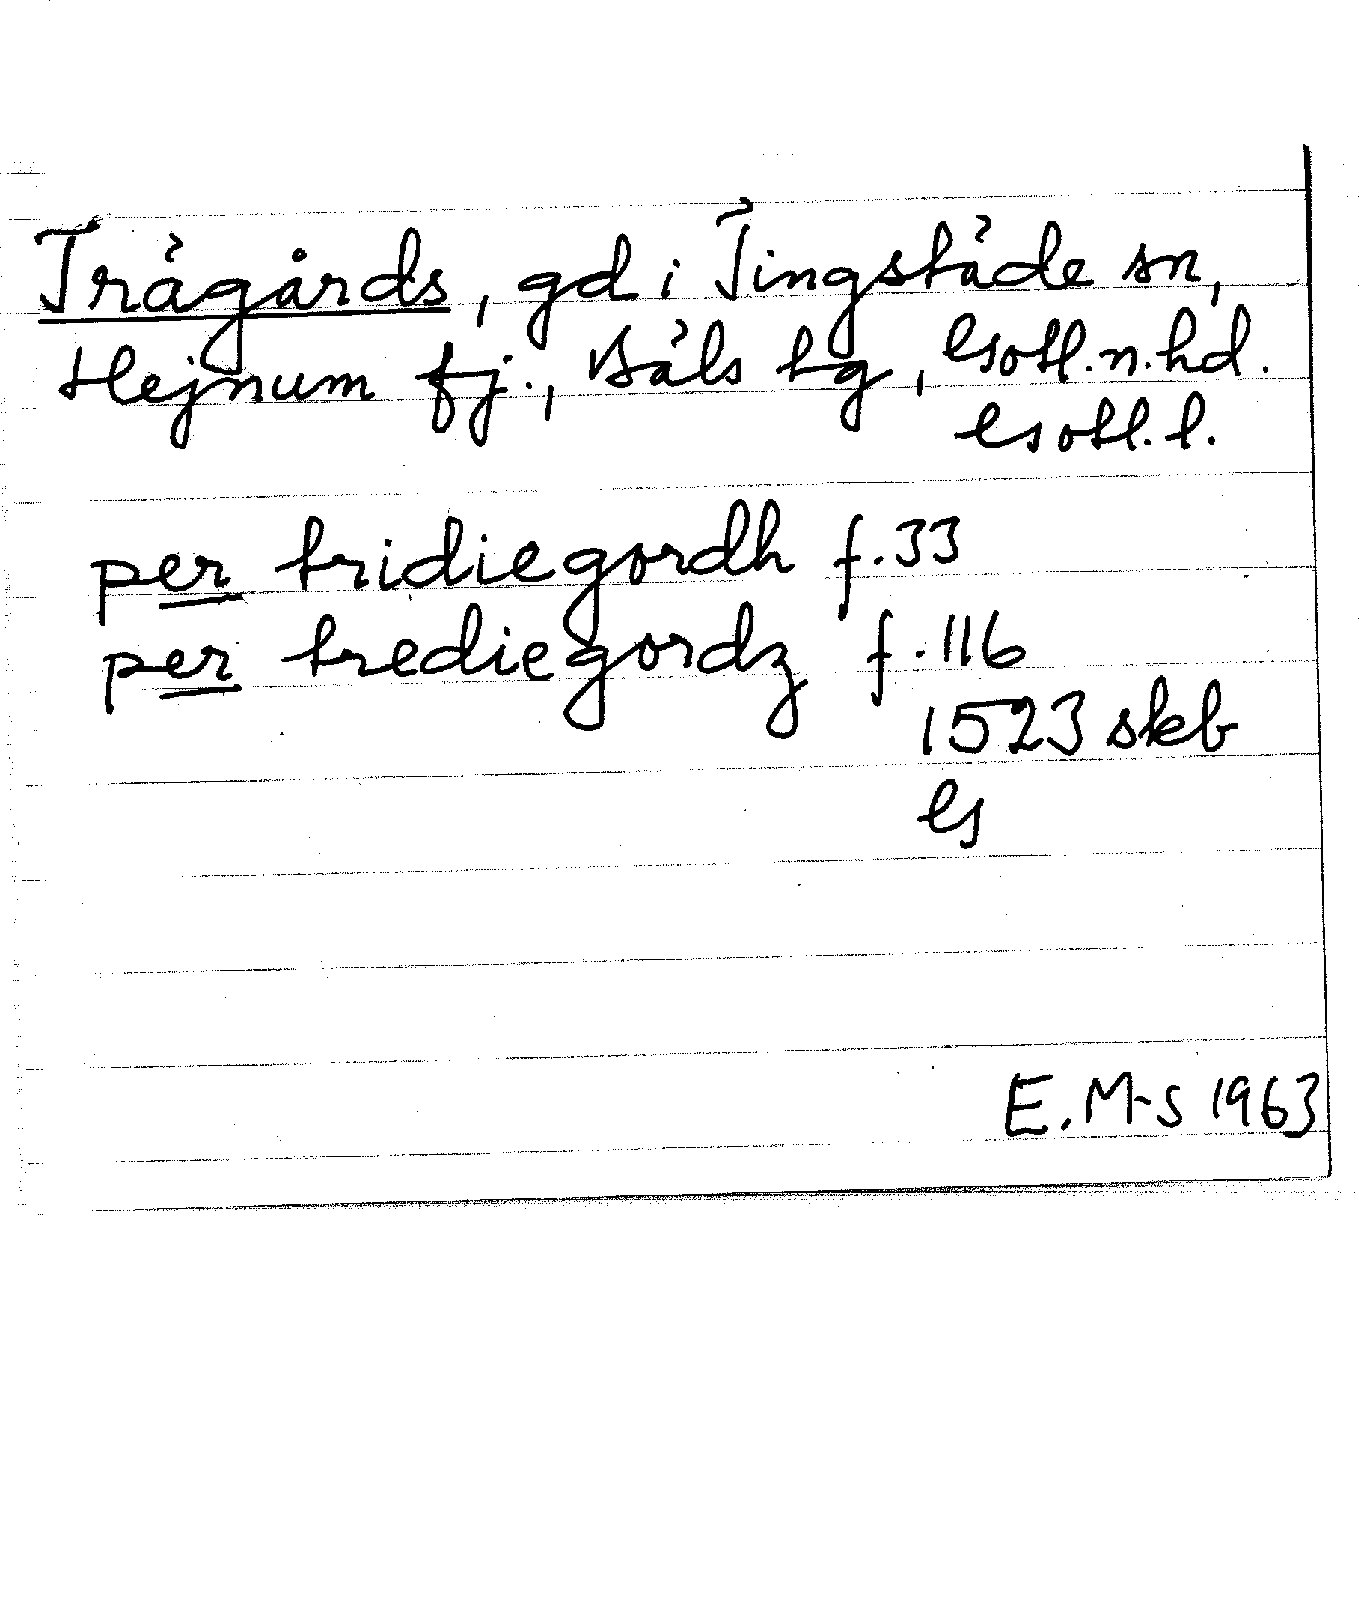 Trägårds, gd i Tingstäde sn,
Hejnum fj., Bäls hg, Gotl.n.hd.
Gotl.l.
per tridiegordh f.33
per trediegordz f.116
1523 skb
G
E.M-S 1963